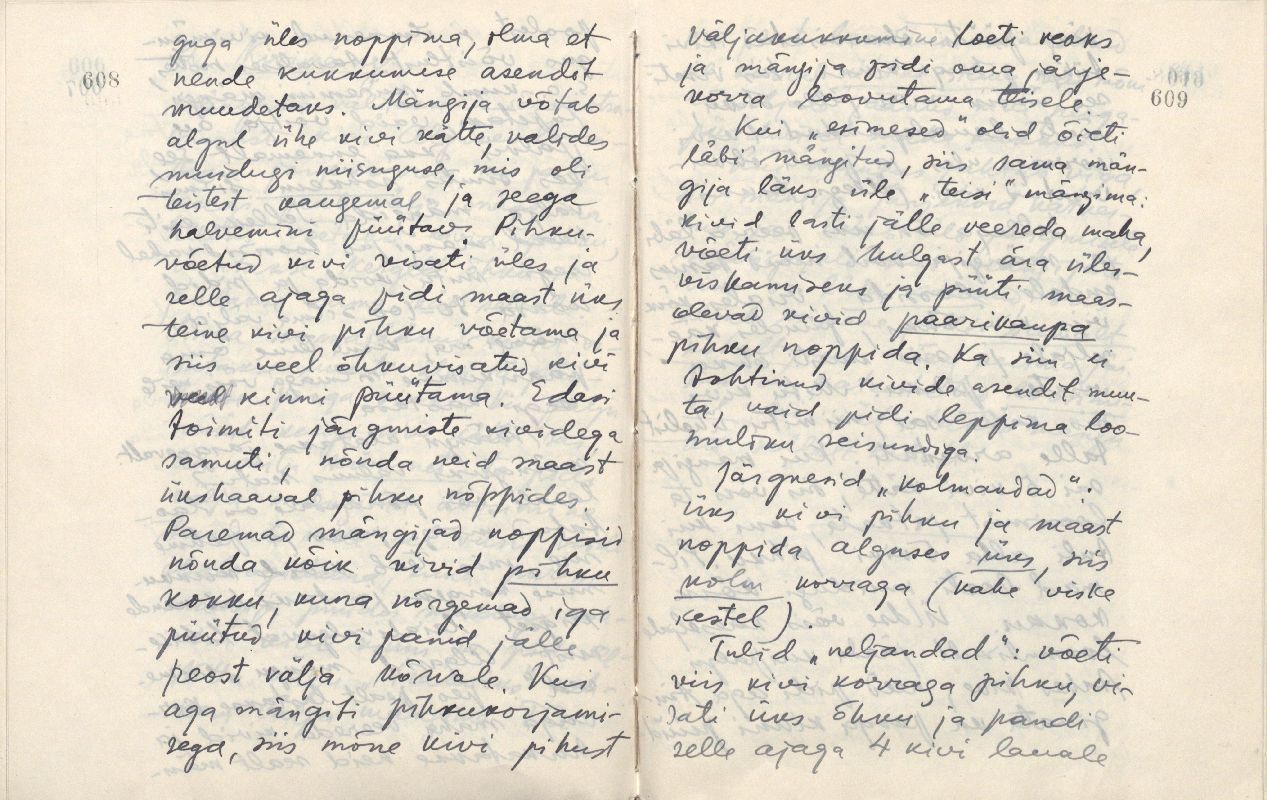 608
guga üles noppima, ilma et
nende kukkumise asendit
muudetaks. Mängija võtab
algul ühe kivi kätte, valides
muidugi niisuguse, mis oli
teistest kaugemal ja seega
halvemini püütav. Pihku-
võetud kivi visati üles ja
selle ajaga pidi maast üks
teine kivi pihku võetama ja
siis veel õhkuvisatud kivi
kinni püütama. Edasi
toimiti järgmiste kividega
samuti, nõnda neid maast
ükshaaval pihku noppides.
Paremad mängijad noppisid
nõnda kõik kivid pihku
kokku, kuna nõrgemad iga
püütud kivi panid jälle
peost välja kõrvale. Kui
aga mängiti pihkukorjami-
sega, siis mõne kivi pihust
609
väljakukkumine loeti veaks
ja mängija pidi oma järje-
korra loovutama teisele.
Kui „esimesed" olid õieti
läbi mängitud, siis sama män-
gija läks üle „teisi" mängima:
kivid lasti jälle veereda maha,
võeti üks hulgast ära üles-
viskamiseks ja püüti maas-
olevad kivid paarikaupa
pihku noppida. Ka siin ei
tohtinud kivide asendit muu-
ta, vaid pidi leppima loo-
muliku seisundiga.
Järgnesid „kolmandad".
Üks kivi pihku ja maast
noppida alguses üks, siis
kolm korraga (kahe viske
kestel).
Tulid „neljandad": võeti
viis kivi korraga pihku, vi-
sati üks õhku ja pandi
selle ajaga 4 kivi lauale